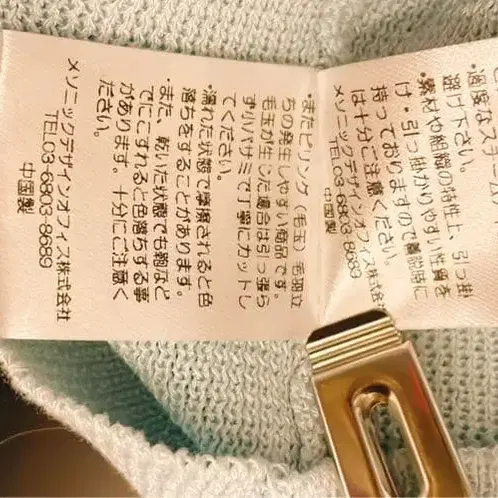 ・過度なスチーム
避け下さい。
・素材や組織の特性上、引っ掛
け・引っ掛かりやすい性質を
持っておりますので着脱時に
は十分ご注意ください。
メソニックデザインオフィス株式会社
TEL03-6803-8689
中国製
・またピリング（毛玉）毛羽立
ちの発生しやすい商品です。
毛玉が生じた場合は引っ張ら
ず小バサミで丁寧にカットし
てください。
・濡れた状態で摩擦されると色
落ちをすることがあります。
また、乾いた状態でも鞄など
でにこすれると色落ちする事
があります。十分にご注意く
ださい。
メソニックデザインオフィス株式会社
TEL03-6803-8689
中国製